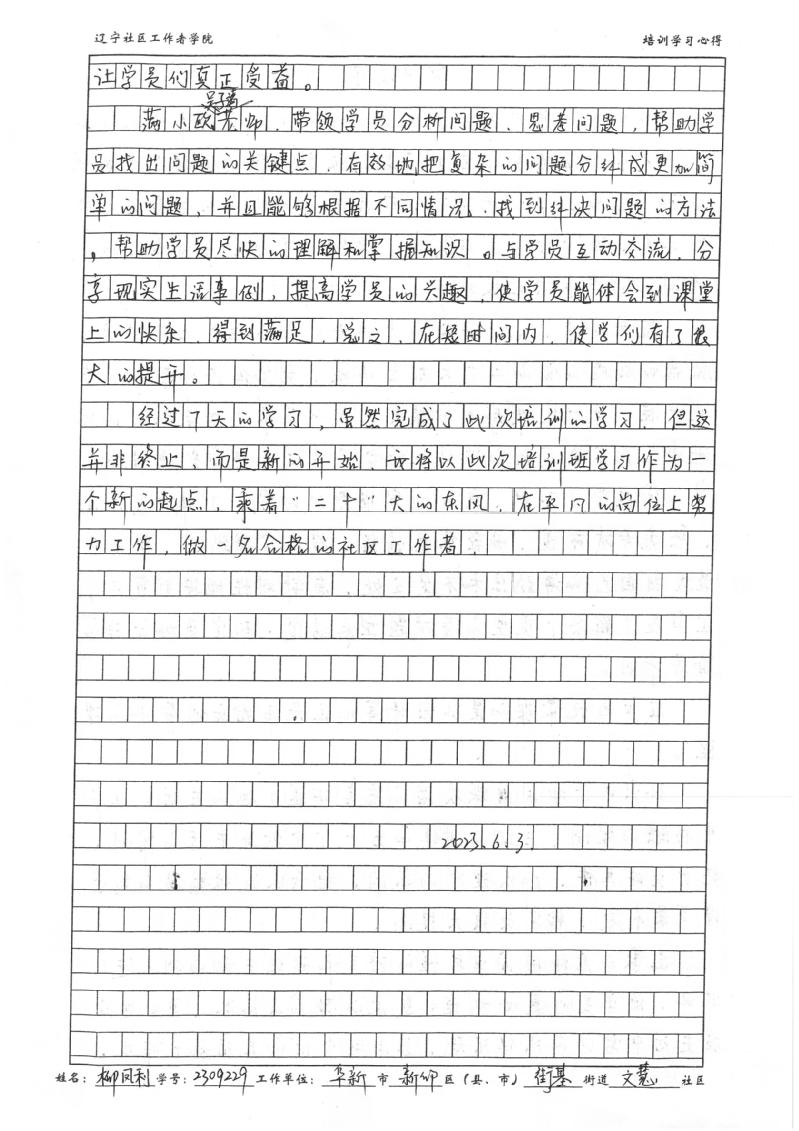 辽宁社区工作者学院 培训学习心得
让学员们真正受益。
满小欧老师、带领学员分析问题、思考问题，帮助学
员找出问题的关键点，有效地把复杂的问题分解成更加简
单的问题，并且能够根据不同情况，找到解决问题的方法
，帮助学员尽快的理解和掌握知识。与学员互动交流，分
享现实生活事例，提高学员的兴趣，使学员能体会到课堂
上的快乐，得到满足，总之，在短时间内，使学们有了很
大的提升。
经过7天的学习，虽然完成了此次培训的学习，但这
并非终止，而是新的开始，我将以此次培训班学习作为一
个新的起点，乘着“二十”大的东风，在平凡的岗位上努
力工作，做一名合格的社区工作者。
2023.6.3.
姓名：柳凤利 学号：2309229 工作单位：阜新 市 新邱 区（县、市） 街基 街道 文慧 社区